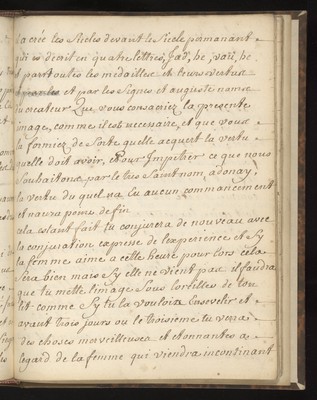 a creé les Siecles devant le Siecle permanant
qui es décrit en quatre lettres, Jad, he, vau, he
et par toutes les medailles et leurs vertus
et par les Signes et auguste noms
du createur Que vous consacriez la presente
image, comme il est necessaire, et que vous
la formiez de Sorte quelle acquert la vertu
quelle doit avoir, et Pour Impetrer ce que nous
Souhaitons par le tres Saint nom, adonay,
la vertu du quel na Eu aucun commancement
et naura point de fin
cela estant fait tu conjurera de nouveau avec
la conjuration expresse de lexperience et Sy
la femme aime a cette heure pour lors cela
Sera bien mais Sy elle ne vient pas il faudra
que tu mette limage Sous loreilles de ton
lit comme Sy tu la vouloit Ensevelir et
avant trois jours ou le troisieme tu verra
des choses merveilleuses et etonnantes a
legard de la femme qui viendra incontinant